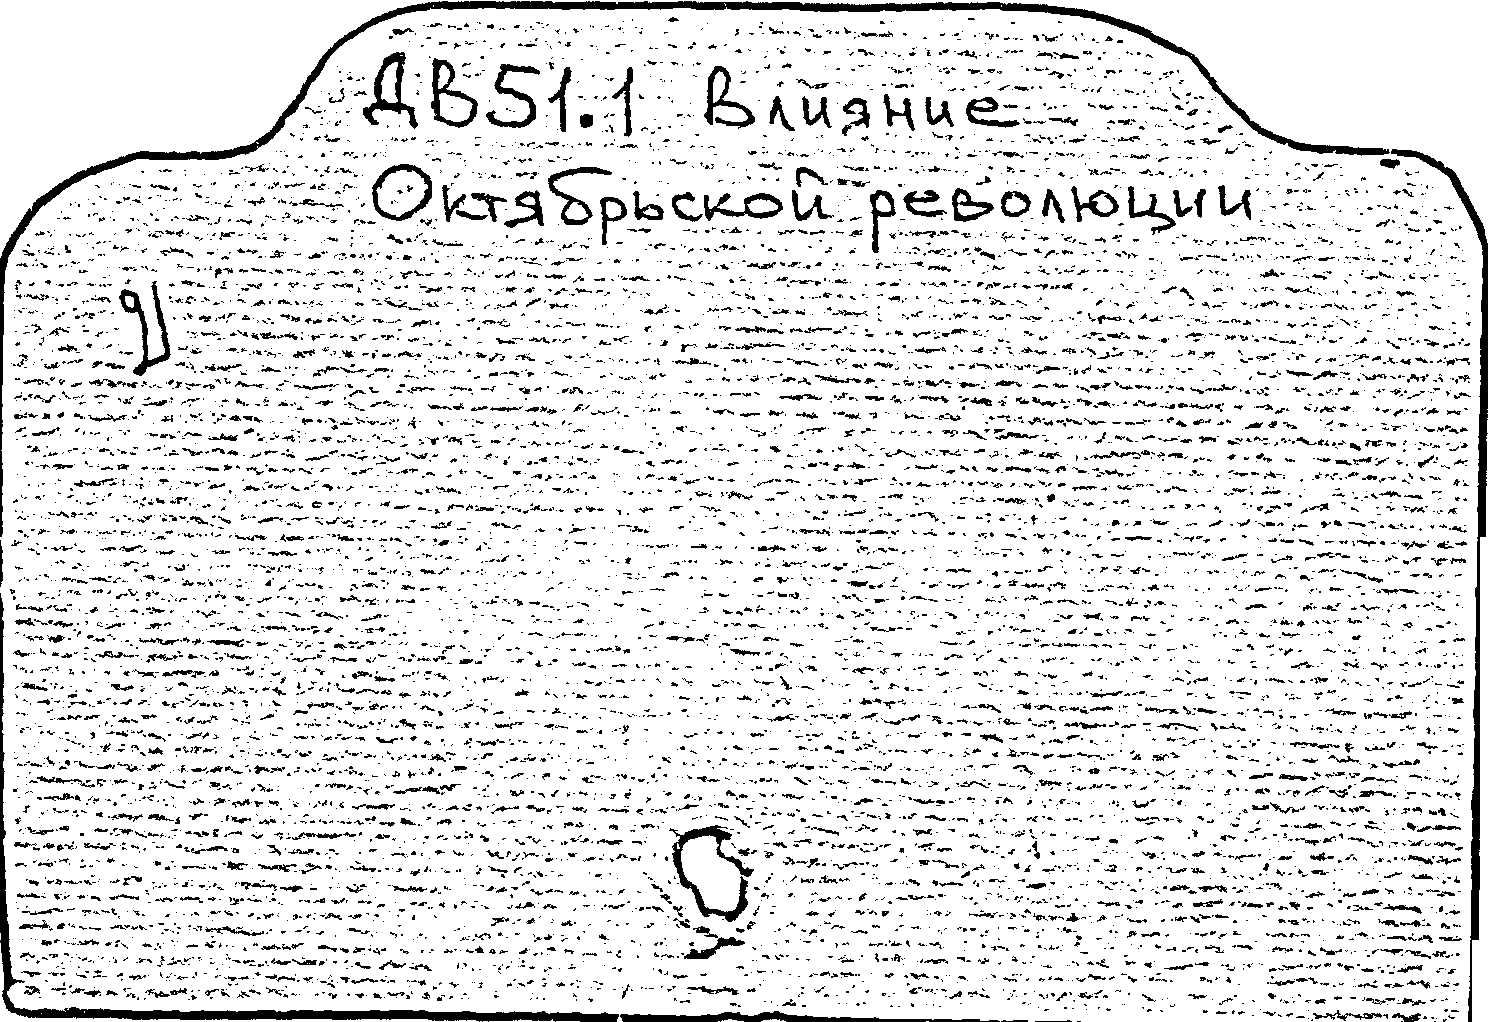 ДВ51.1 Влияние
Октябрьской революции